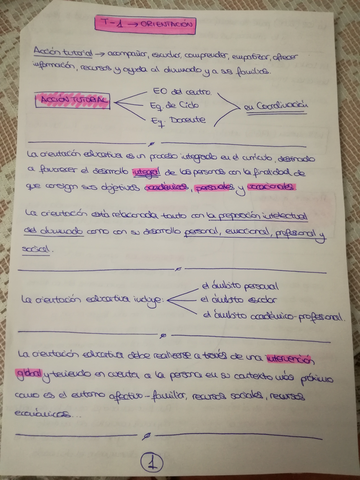 T-1 → ORIENTACIÓN
Acción tutorial → acompañar, escuchar, comprender, empatizar, ofrecer
información, recursos y ayuda al alumnado y a sus familias
ACCIÓN TUTORIAL
EO del centro
Eq. de Ciclo
Eq. Docente
en Coordinación
La orientación educativa es un proceso integrado en el currículo, destinado
a favorecer el desarrollo integral de las personas con la finalidad de
que consigan sus objetivos académicos, personales y vocacionales.
La orientación está relacionada tanto con la preparación intelectual
del alumnado como con su desarrollo personal, emocional, profesional y
social.
La orientación educativa incluye:
el ámbito personal
el ámbito escolar
el ámbito académico-profesional.
La orientación educativa debe realizarse a través de una intervención
global y teniendo en cuenta a la persona en su contexto más próximo
como es el entorno afectivo-familiar, recursos sociales, recursos
económicos...
1